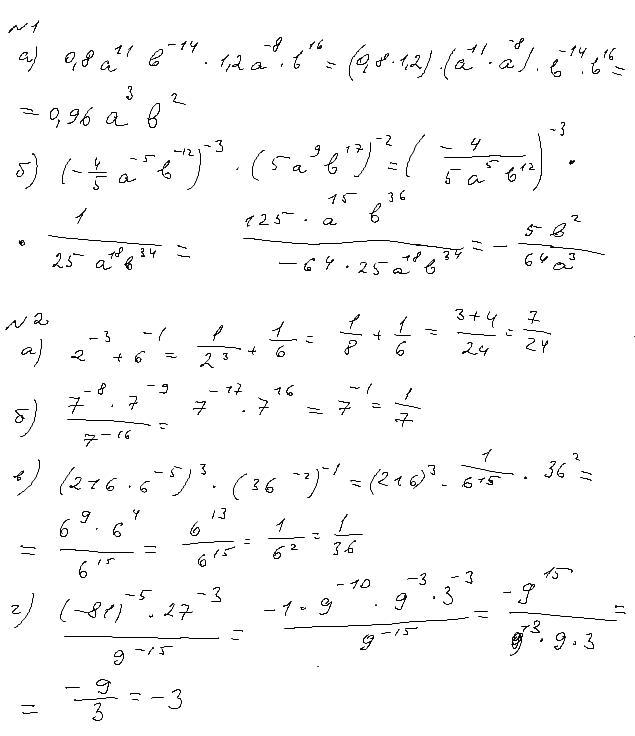 №1
а) 0,8 a^11 b^-14 · 1,2 a^-8 · b^16 = (0,8·1,2)·(a^11 · a^-8)· b^-14 · b^16 =
= 0,96 a^3 b^2
б) (-4/5 a^-5 b^-12)^-3 · (5a^9 b^17)^-2 = (-4/(5a^5 b^12))^-3 ·
· 1/(25 a^18 b^34) = (125 · a^15 b^36)/(-64 · 25 a^18 b^34) = - 5b^2/(64a^3)
№2
а) 2^-3 + 6^-1 = 1/2^3 + 1/6 = 1/8 + 1/6 = (3+4)/24 = 7/24
б) (7^-8 · 7^-9)/7^-16 = 7^-17 · 7^16 = 7^-1 = 1/7
в) (216 · 6^-5)^3 · (36^-2)^-1 = (216)^3 · 1/6^15 · 36^2 =
= (6^9 · 6^4)/6^15 = 6^13/6^15 = 1/6^2 = 1/36
г) ((-81)^-5 · 27^-3)/9^-15 = (-1 · 9^-10 · 9^-3 · 3^-3)/9^-15 = -9^15/(9^13 · 9 · 3) =
= -9/3 = -3